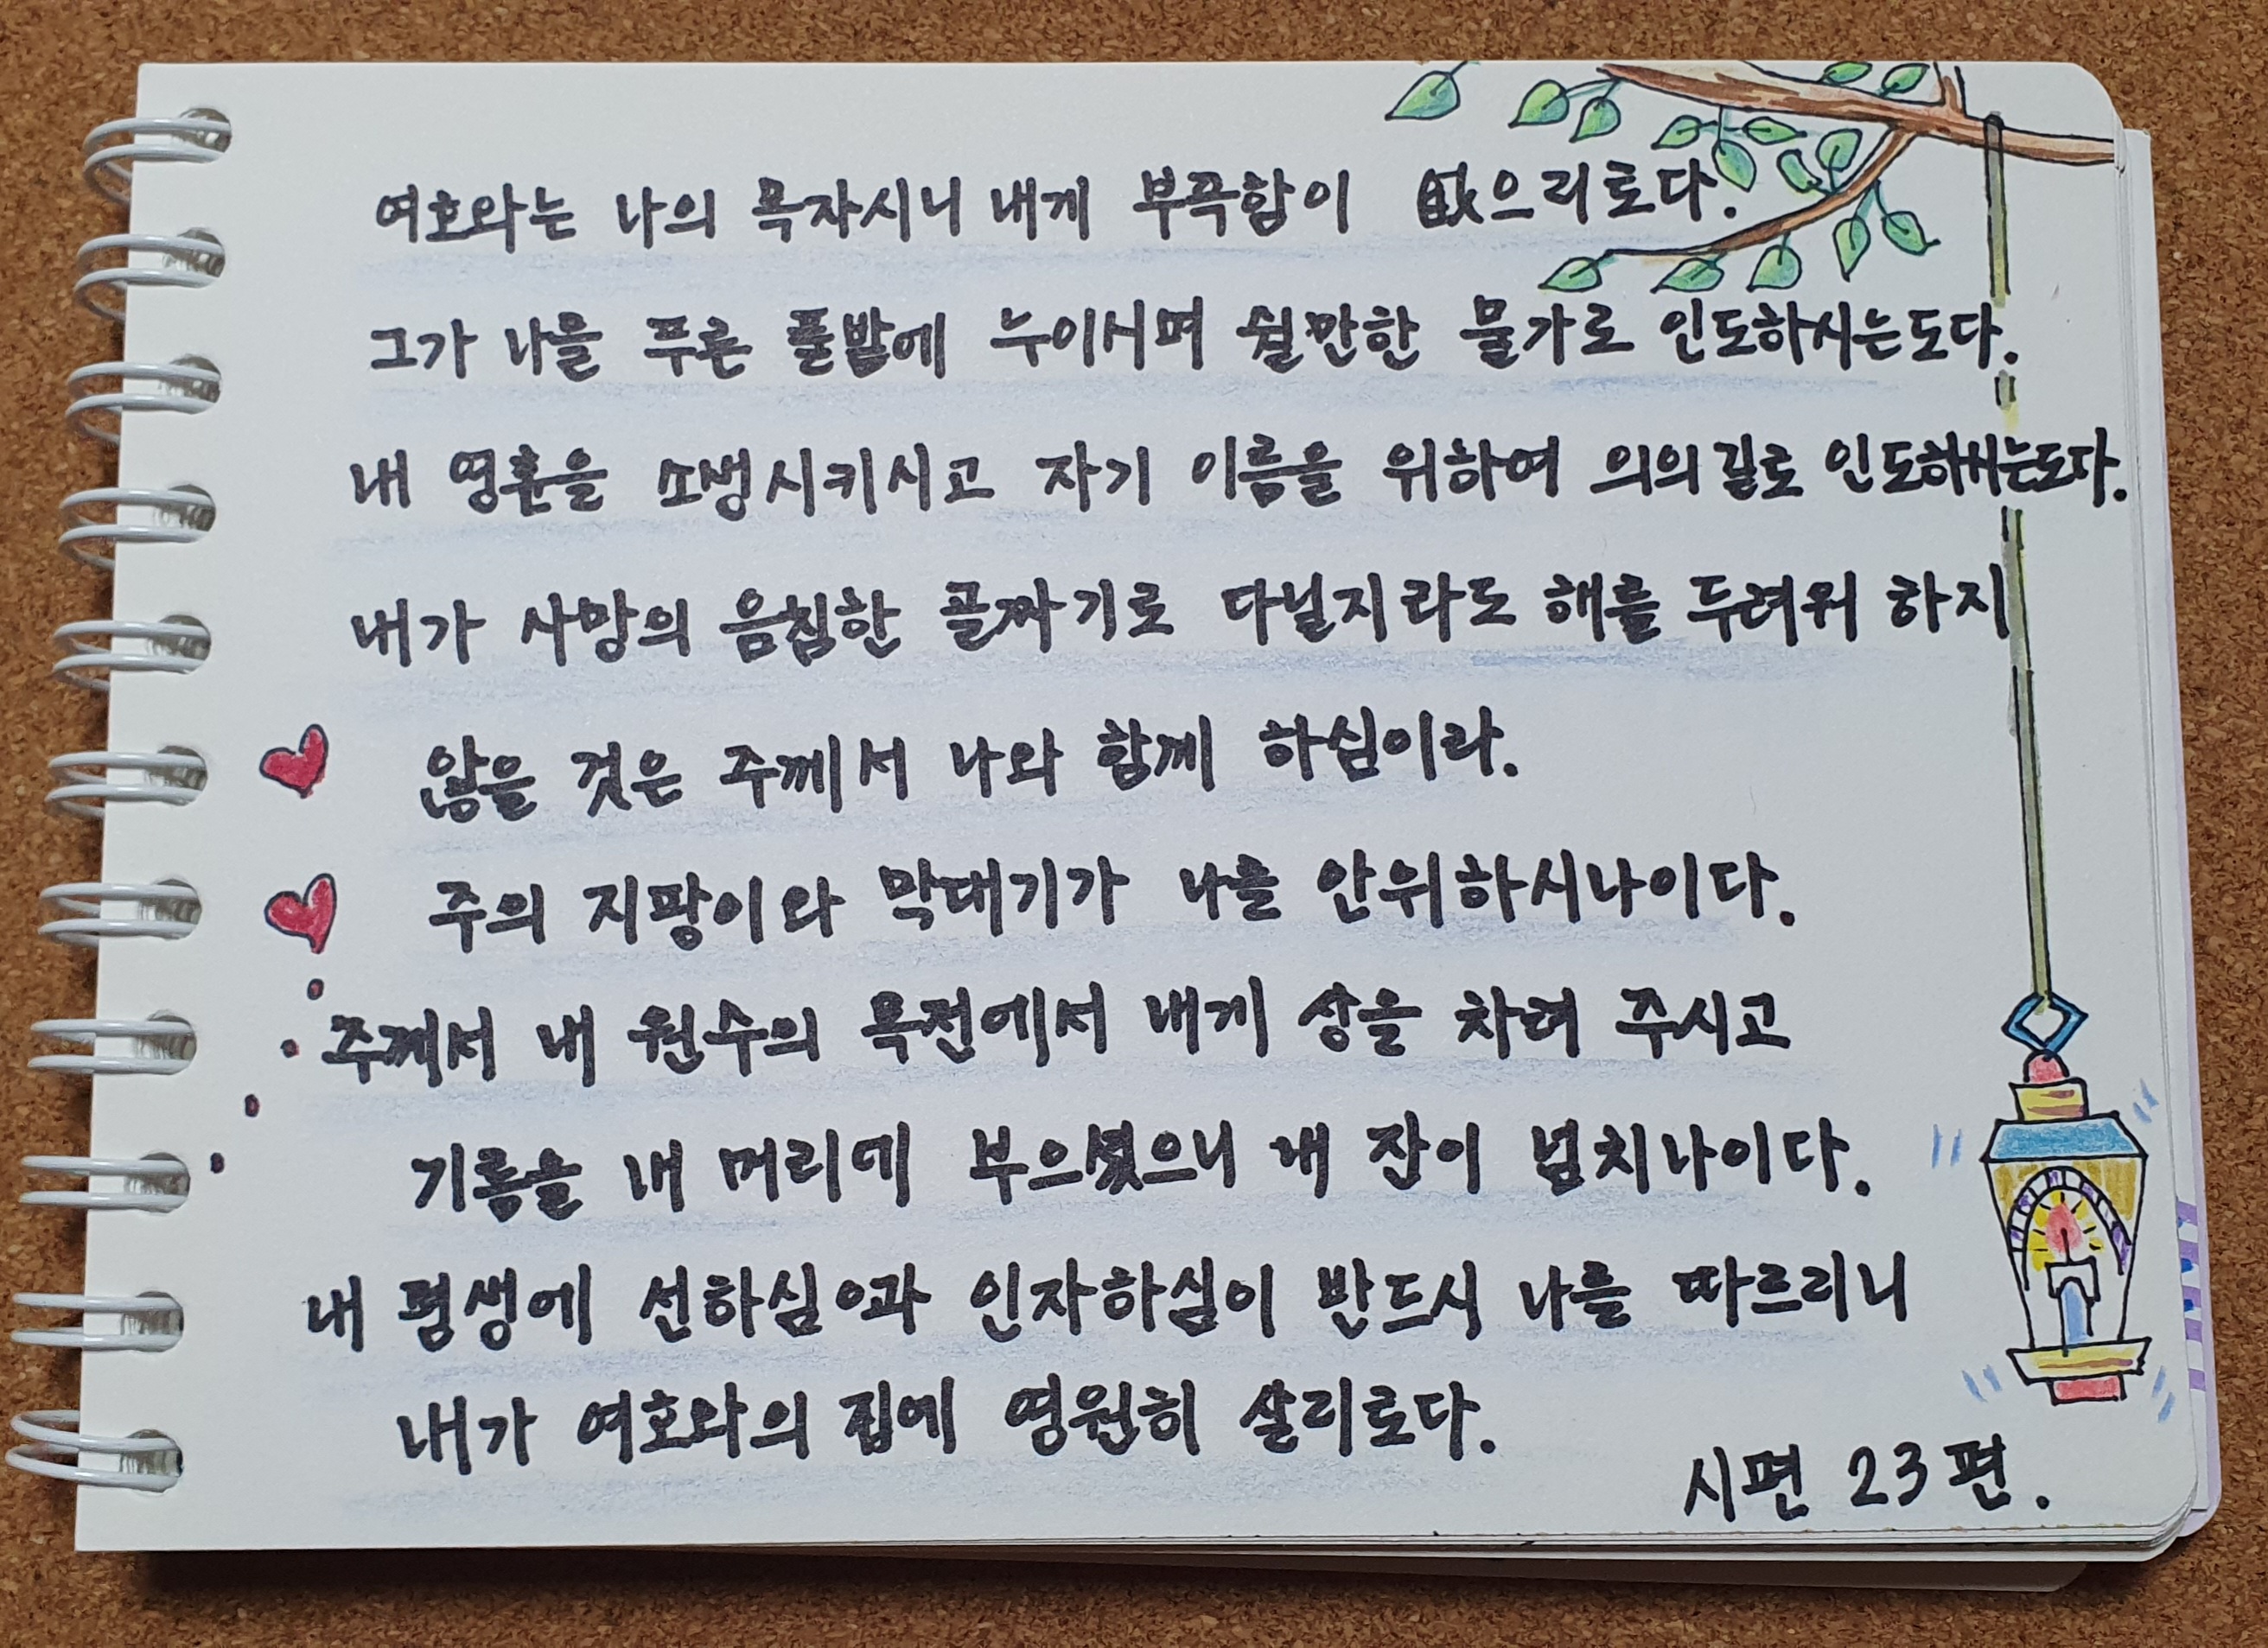 여호와는 나의 목자시니 내게 부족함이 없으리로다.
그가 나를 푸른 풀밭에 누이시며 쉴만한 물가로 인도하시는도다.
내 영혼을 소생시키시고 자기 이름을 위하여 의의 길로 인도하시는도다.
내가 사망의 음침한 골짜기로 다닐지라도 해를 두려워 하지
않을 것은 주께서 나와 함께 하심이라.
주의 지팡이와 막대기가 나를 안위하시나이다.
주께서 내 원수의 목전에서 내게 상을 차려 주시고
기름을 내 머리에 부으셨으니 내 잔이 넘치나이다.
내 평생에 선하심과 인자하심이 반드시 나를 따르리니
내가 여호와의 집에 영원히 살리로다.
시편 23편.